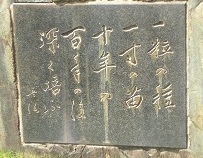 一粒の種
一寸の苗
十年の
百年の後
深く培ふ